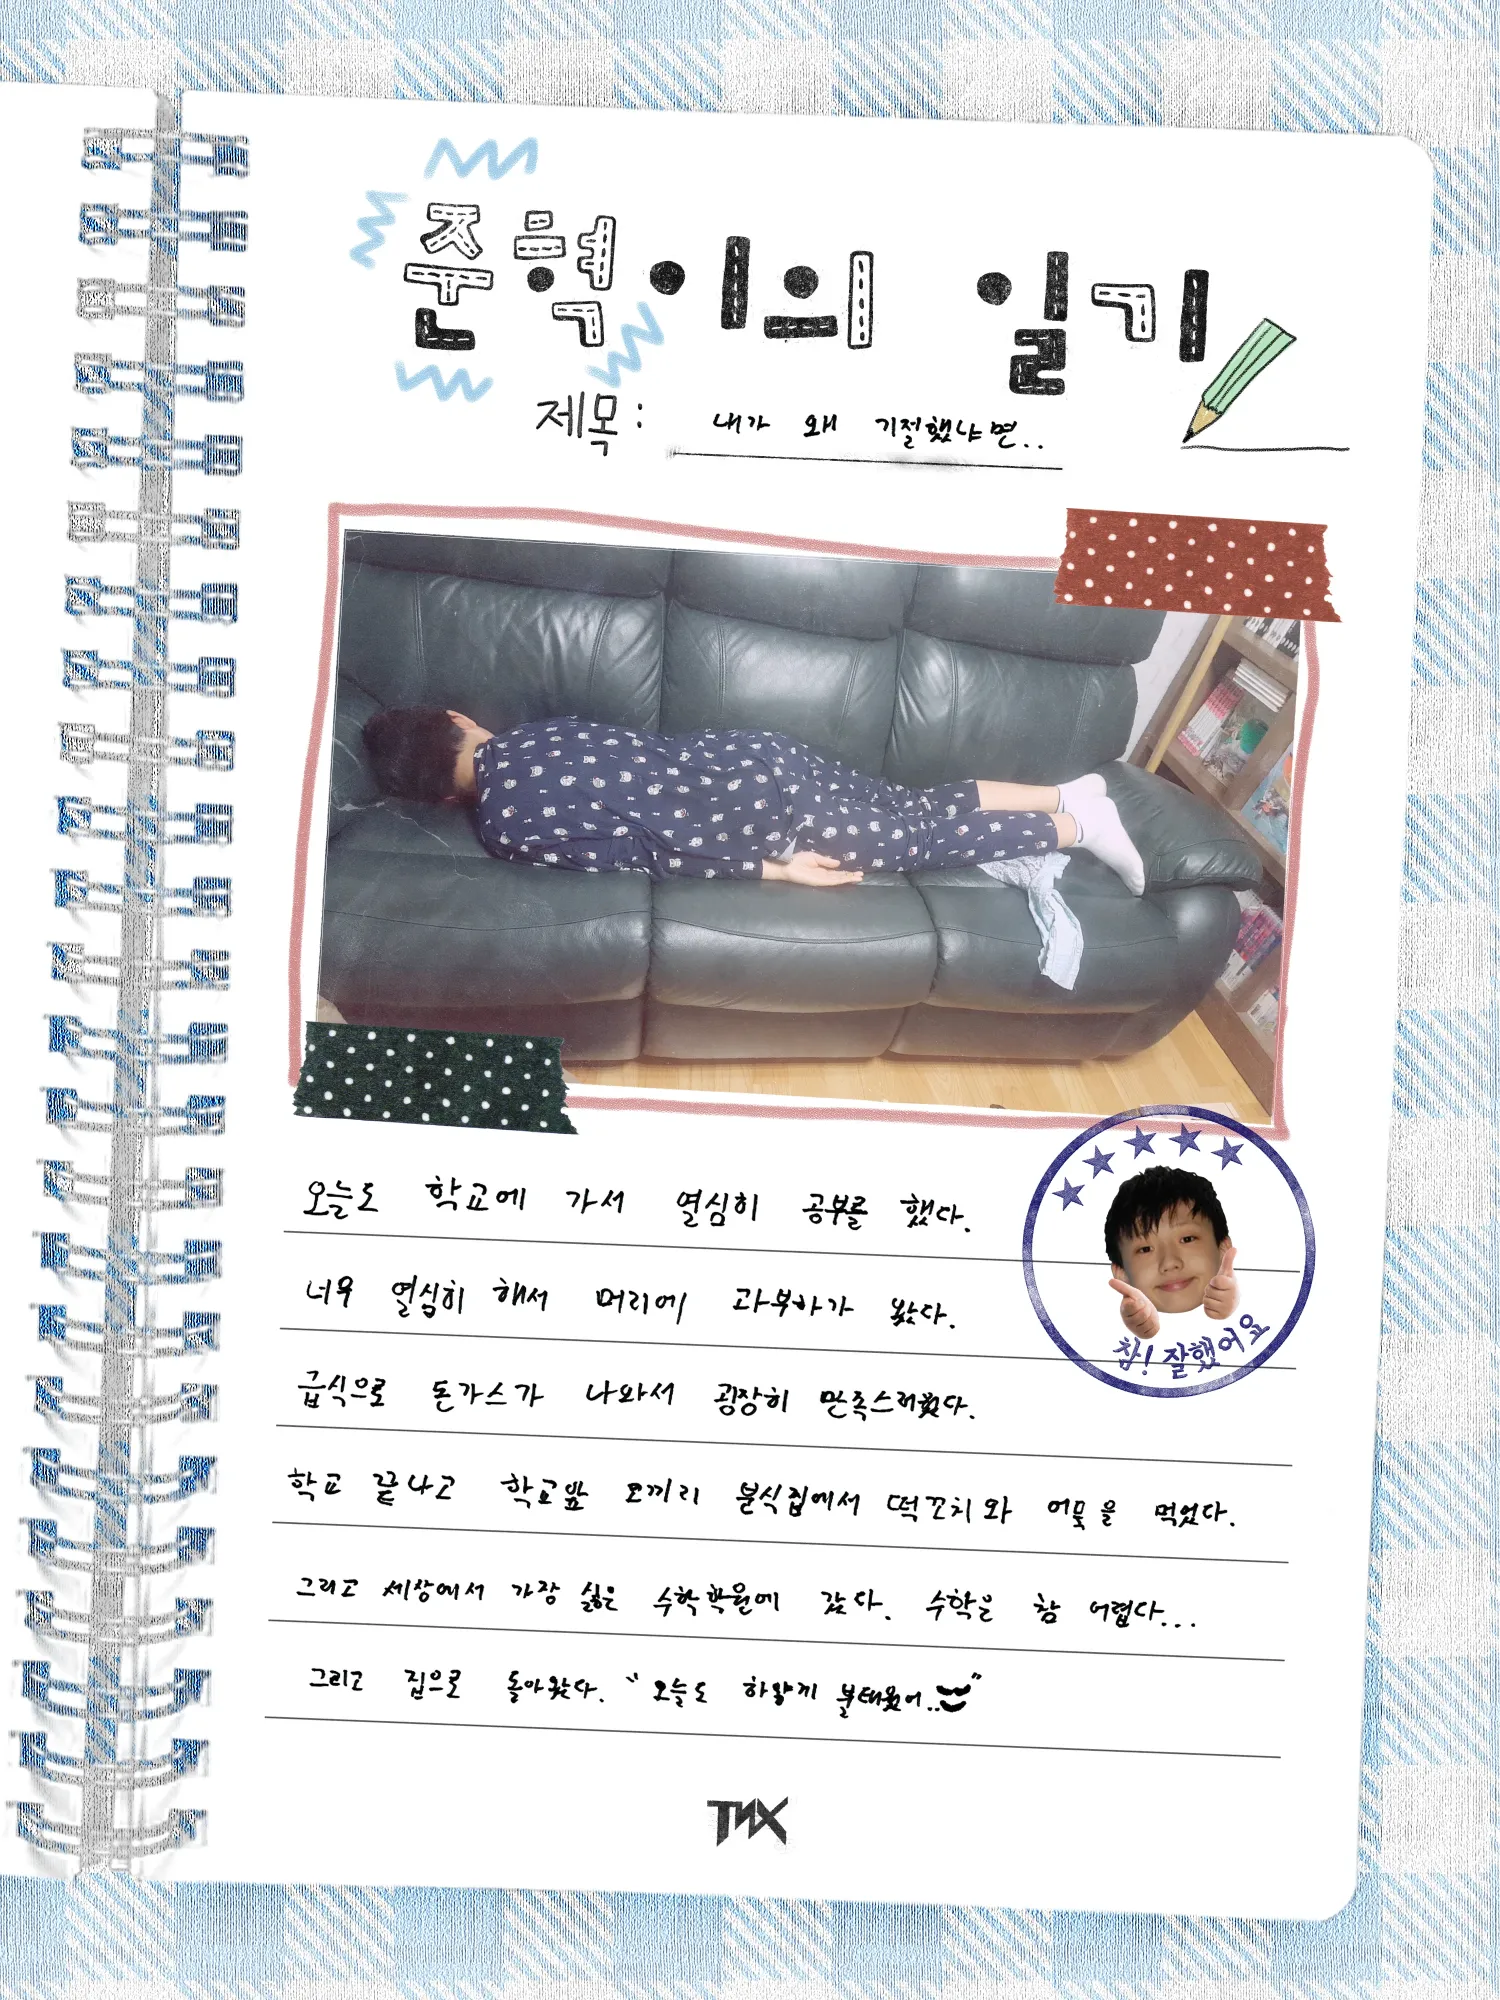 준혁이의 일기
제목 : 내가 왜 기절했냐면..
오늘도 학교에 가서 열심히 공부를 했다.
너무 열심히 해서 머리에 과부하가 왔다.
급식으로 돈가스가 나와서 굉장히 만족스러웠다.
학교 끝나고 학교앞 코끼리 분식집에서 떡꼬치와 어묵을 먹었다.
그리고 세상에서 가장 싫은 수학학원에 갔다. 수학은 참 어렵다...
그리고 집으로 돌아왔다. "오늘도 하얗게 불태웠어.."
참! 잘했어요
TNX